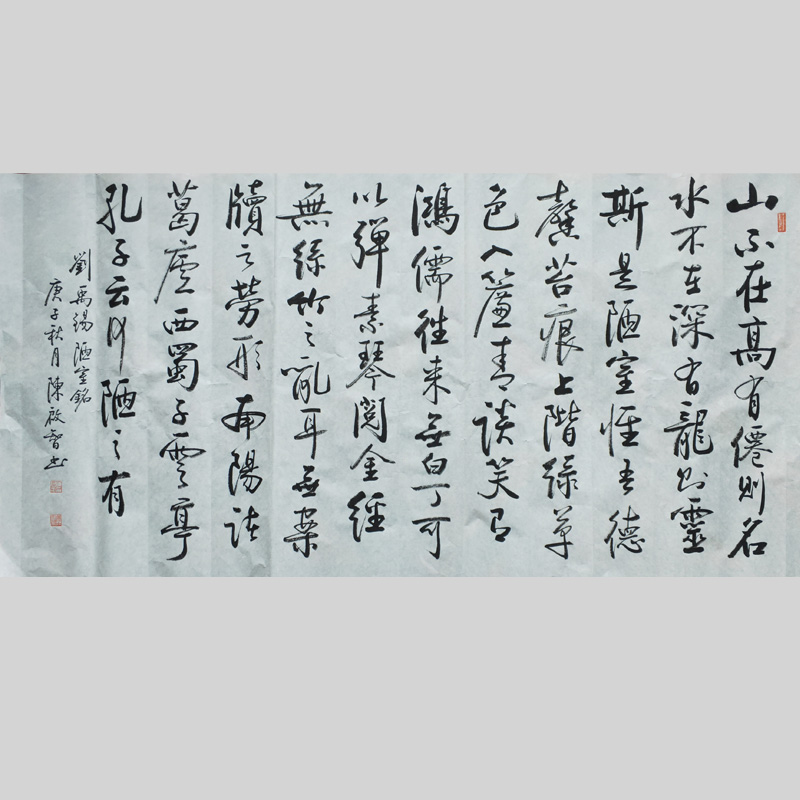 山不在高有僊則名
水不在深有龍則靈
斯是陋室惟吾德
馨苔痕上階綠草
色入簾青談笑有
鴻儒往來無白丁可
以彈素琴閱金經
無絲竹之亂耳無案
牘之勞形南陽諸
葛廬西蜀子雲亭
孔子云何陋之有
劉禹錫陋室銘
庚子秋月陳啟智書